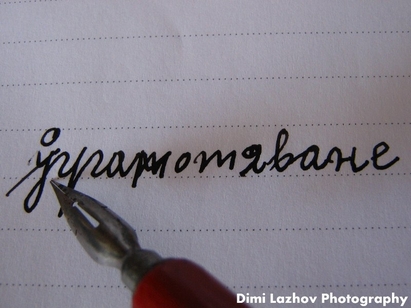 ограмотяване
Dimi Lazhov Photography